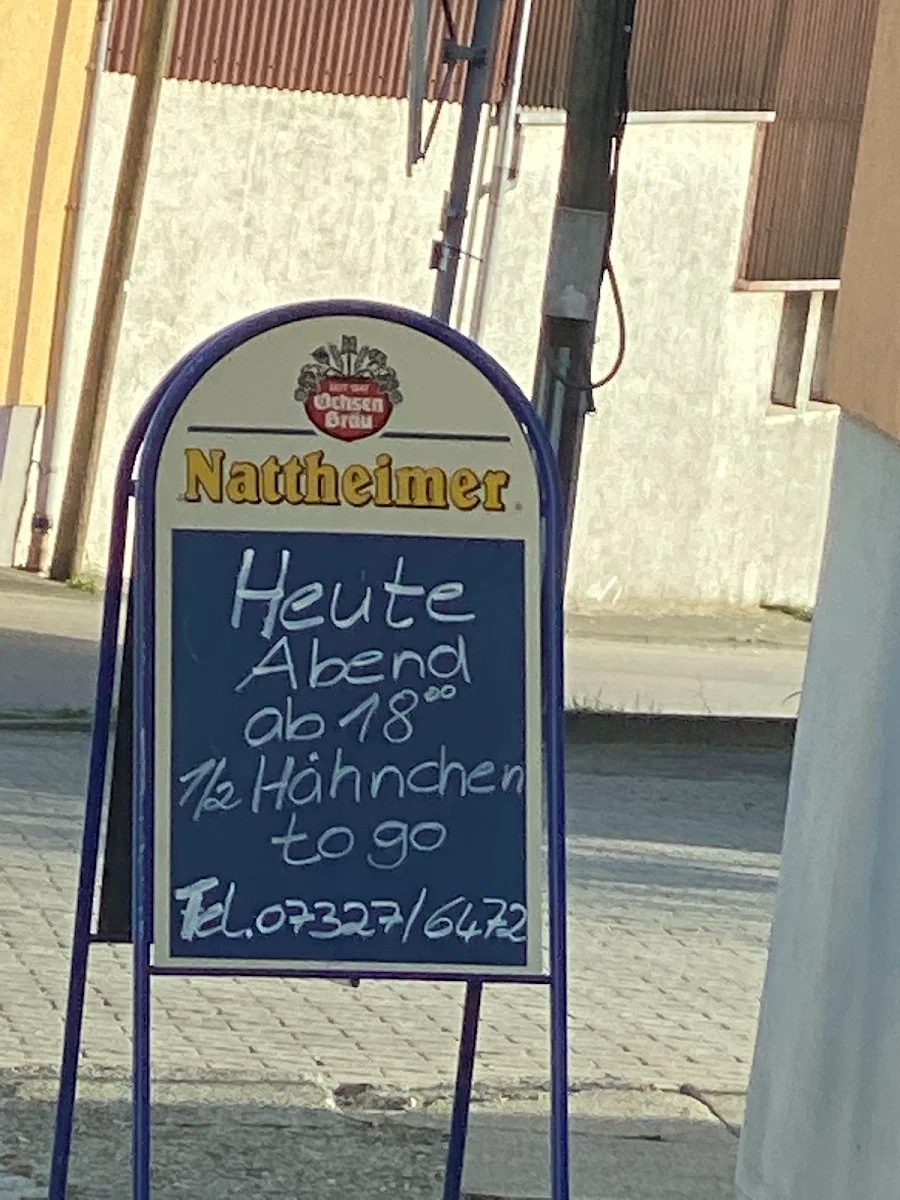 Ochsen
Bräu
Nattheimer
Heute
Abend
ab 18⁰⁰
1/2 Hähnchen
to go
Tel. 07327/6472